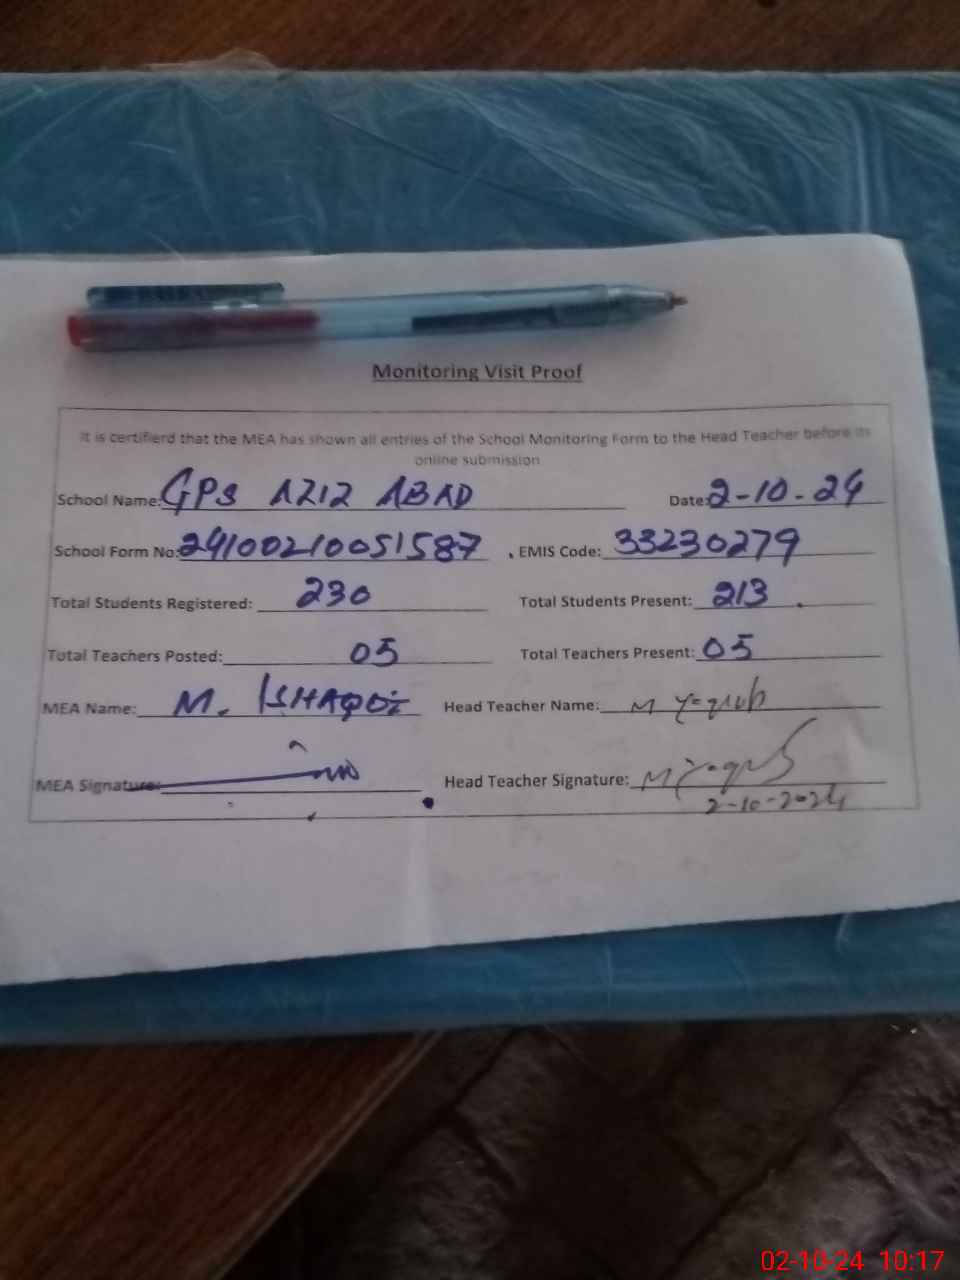 Monitoring Visit Proof
It is certifierd that the MEA has shown all entries of the School Monitoring Form to the Head Teacher before its
online submission
School Name: GPS AZIZ ABAD Date: 2-10-24
School Form No: 24100210051587 EMIS Code: 33230279
Total Students Registered: 230 Total Students Present: 213
Total Teachers Posted: 05 Total Teachers Present: 05
MEA Name: M. Head Teacher Name: M Yaqub
MEA Signature: Head Teacher Signature: M Yaqub
2-10-2024
02-10-24 10:17